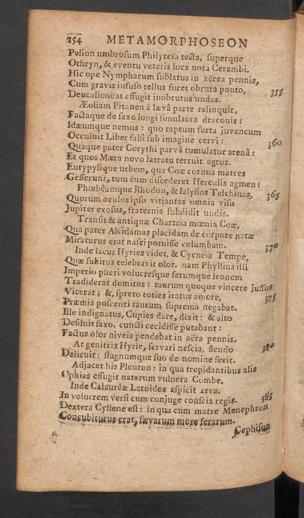 254 METAMORPHOSEON
Pelion umbrosum Philyreia tecta, superque
Othryn, & eventu veteris loca nota Cerambi.
Hic ope Nympharum sublatus in aëra pennis,
Cum gravis infuso tellus foret obruta ponto, 355
Deucalionëas effugit inobrutus undas.
Æoliam Pitanen à lævâ parte relinquit,
Factaque de saxo longi simulacra draconis:
Idæumque nemus: quo raptum furta juvencum
Occuluit Liber falsi sub imagine cervi: 360
Quaque pater Corythi parvâ tumulatur arenâ:
Et quos Mæra novo latratu terruit agros.
Eurypylique urbem, qua Coæ cornua matres
Gesserunt, tum cum discederet Herculis agmen:
Phœbēamque Rhodon, & Ialysios Telchinas, 365
Quorum oculos ipso vitiantes omnia visu
Jupiter exosus, fraternis subdidit undis.
Transit & antiquæ Charteia mœnia Coæ,
Qua pater Alcidamas placidam de corpore natæ
Miraturus erat nasci potuisse columbam. 370
Inde lacus Hyries videt, & Cycneia Tempe,
Quæ subitus celebravit olor. nam Phyllius illi
Imperio pueri volucresque ferumque leonem
Tradiderat domitos: taurum quoque vincere jussus
Vicerat; &, spreto toties iratus amore, 375
Præmia poscenti taurum suprema negabat.
Ille indignatus, Cupies dare, dixit: & alto
Desiluit saxo. cuncti cecidisse putabant:
Factus olor niveis pendebat in aëra pennis.
At genitrix Hyrie, servari nescia, flendo 380
Delicuit: stagnumque suo de nomine fecit.
Adjacet his Pleuron: in qua trepidantibus alis
Ophias effugit natorum vulnera Combe.
Inde Calaureæ Latoidos aspicit arva.
In volucrem versi cum conjuge conscia regis. 385
Dextera Cyllene est: in qua cum matre Menephron
Concubiturus erat, sævarum more ferarum.
Cephison